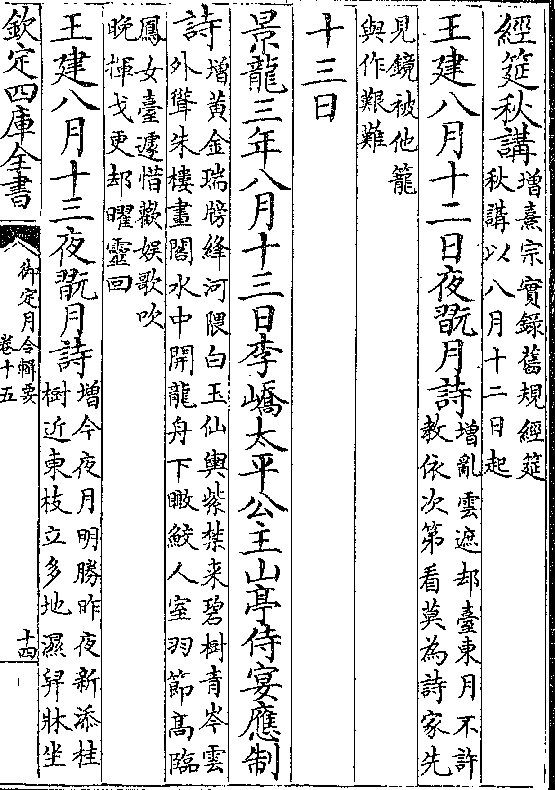 經筵秋講增熹宗實錄舊規經筵
秋講以八月十二日起
王建八月十二日夜翫月詩增亂雲遮却臺東月不許
教依次第看莫為詩家先
見鏡被他籠
與作艱難
十三日
景龍三年八月十三日李嶠太平公主山亭侍宴應制
詩增黃金瑞牓絳河隈白玉仙輿紫禁来碧樹青岑雲
外聳朱樓畫閣水中開龍舟下瞰鮫人室羽節髙臨
鳳女臺遽惜歡娛歌吹
晚揮戈更却曜靈回
王建八月十三夜翫月詩增今夜月明勝昨夜新添桂
樹近東枝立多地濕舁牀坐
欽定四庫全書
御定月令輯要
卷十五
十四